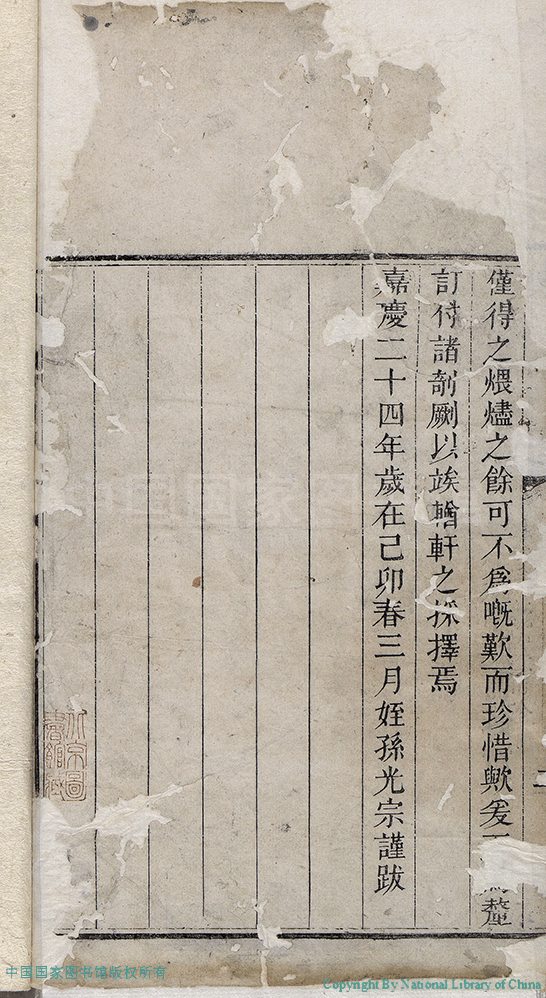 僅得之煨燼之餘可不爲嘅歎而珍惜歟爰釐
訂付諸剞劂以竢輶軒之採擇焉
嘉慶二十四年歲在己卯春三月姪孫光宗謹跋
中国国家图书馆版权所有
Copyright By National Library of China